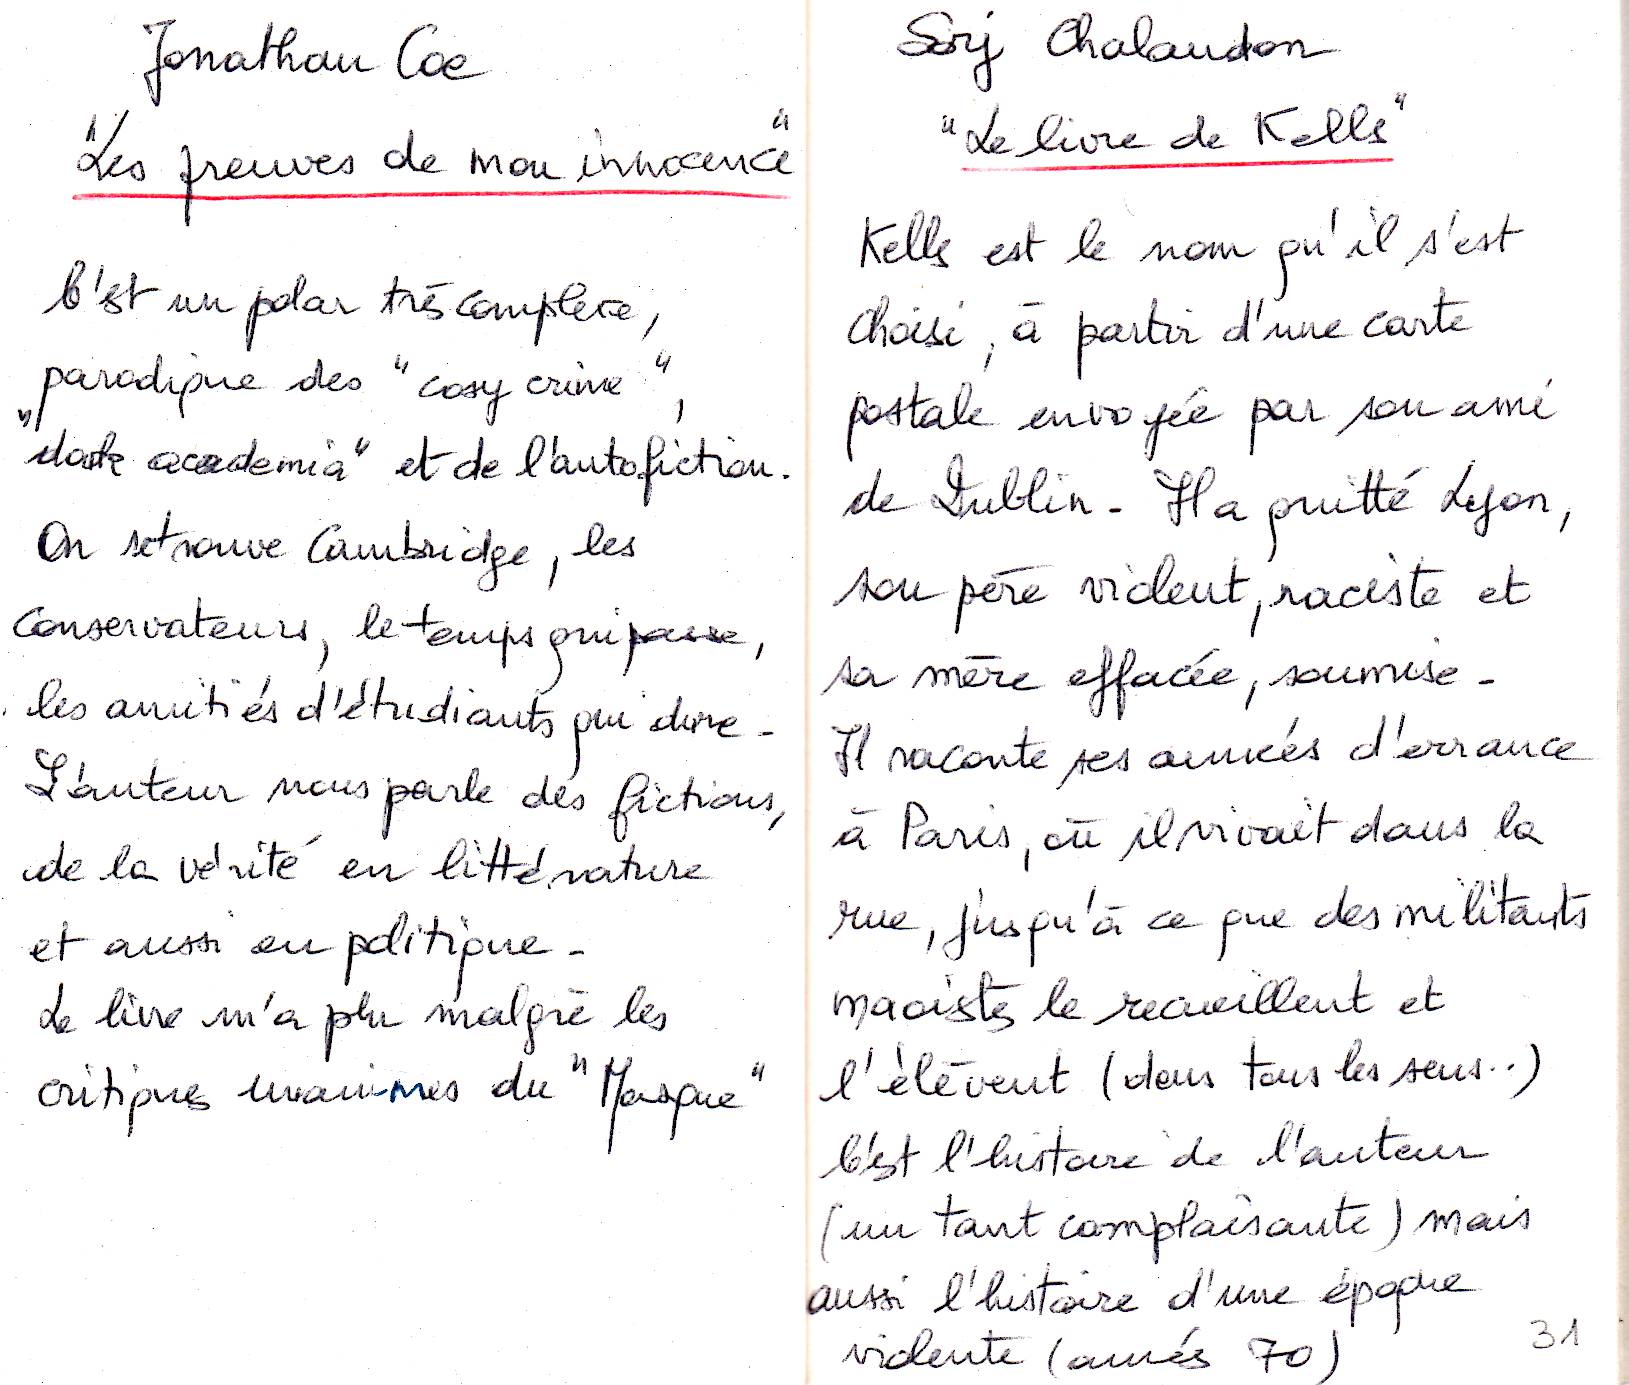 Jonathan Coe
"Les preuves de mon innocence"
C'est un polar très complexe,
parodique des "cosy crime",
"dark academia" et de l'autofiction.
On retrouve Cambridge, les
conservateurs, le temps qui passe,
les amitiés d'étudiants qui dure -
L'auteur nous parle des fictions,
de la vérité en littérature
et aussi en politique -
Le livre m'a plu malgré les
critiques unanimes du "Masque"
Sorj Chalandon
"Le livre de Kells"
Kells est le nom qu'il s'est
choisi, à partir d'une carte
postale envoyée par son ami
de Dublin - Il a quitté Lyon,
son père violent, raciste et
sa mère effacée, soumise -
Il raconte ses années d'errance
à Paris, où il vivait dans la
rue, jusqu'à ce que des militants
maoistes le recueillent et
l'élèvent (dans tous les sens..)
C'est l'histoire de l'auteur
(un tant complaisante) mais
aussi l'histoire d'une époque
violente (années 70)
31